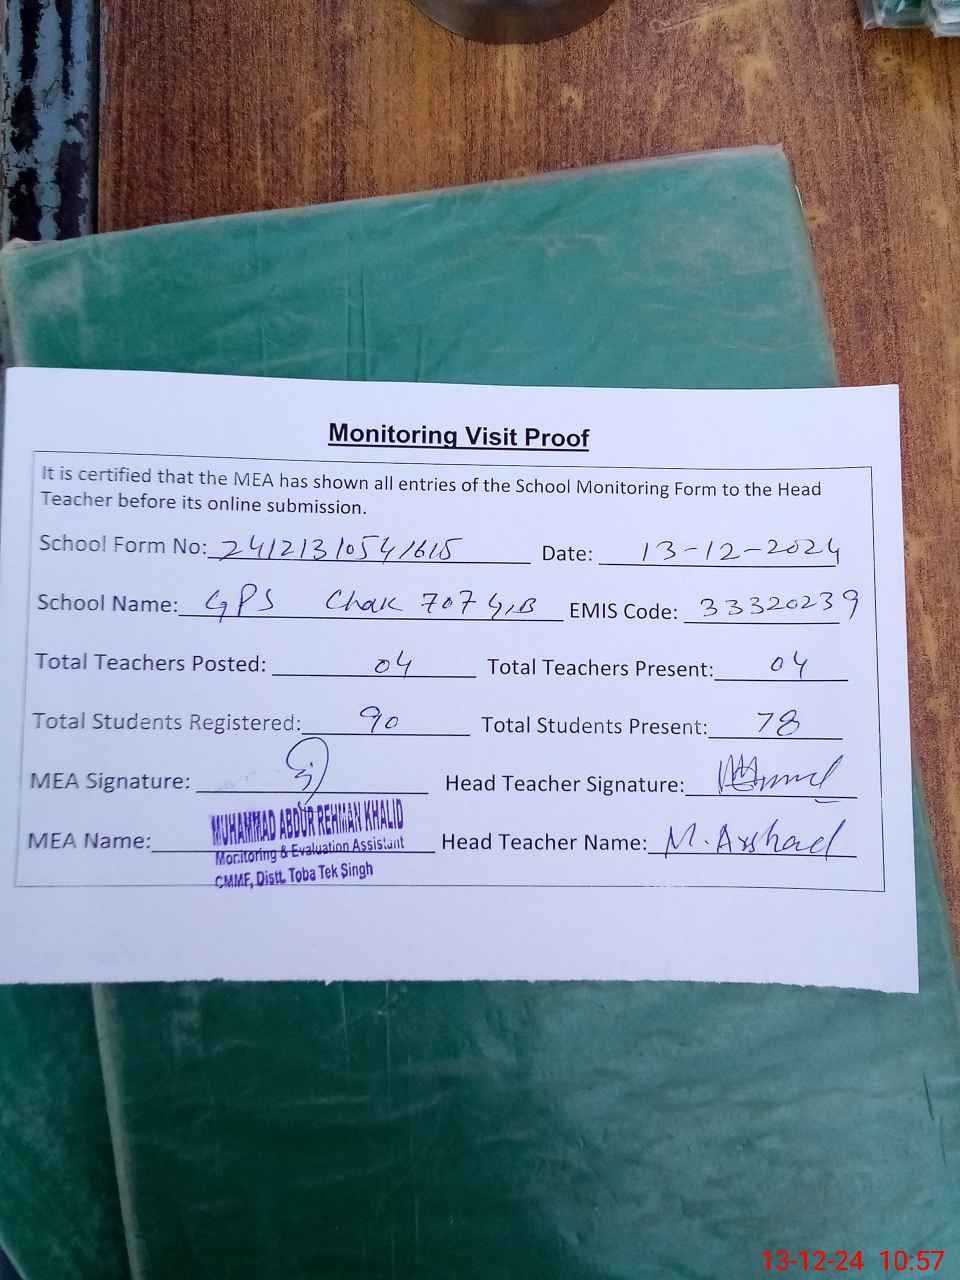 Monitoring Visit Proof
It is certified that the MEA has shown all entries of the School Monitoring Form to the Head
Teacher before its online submission.
School Form No: 24121310541615 Date: 13-12-2024
School Name: GPS Chak 707 G,B EMIS Code: 33320239
Total Teachers Posted: 04 Total Teachers Present: 04
Total Students Registered: 90 Total Students Present: 78
MEA Signature: Head Teacher Signature:
MEA Name: MUHAMMAD ABDUR REHMAN KHALID Head Teacher Name: M. Arshad
Monitoring & Evaluation Assistant
CMMF, Distt. Toba Tek Singh
13-12-24 10:57